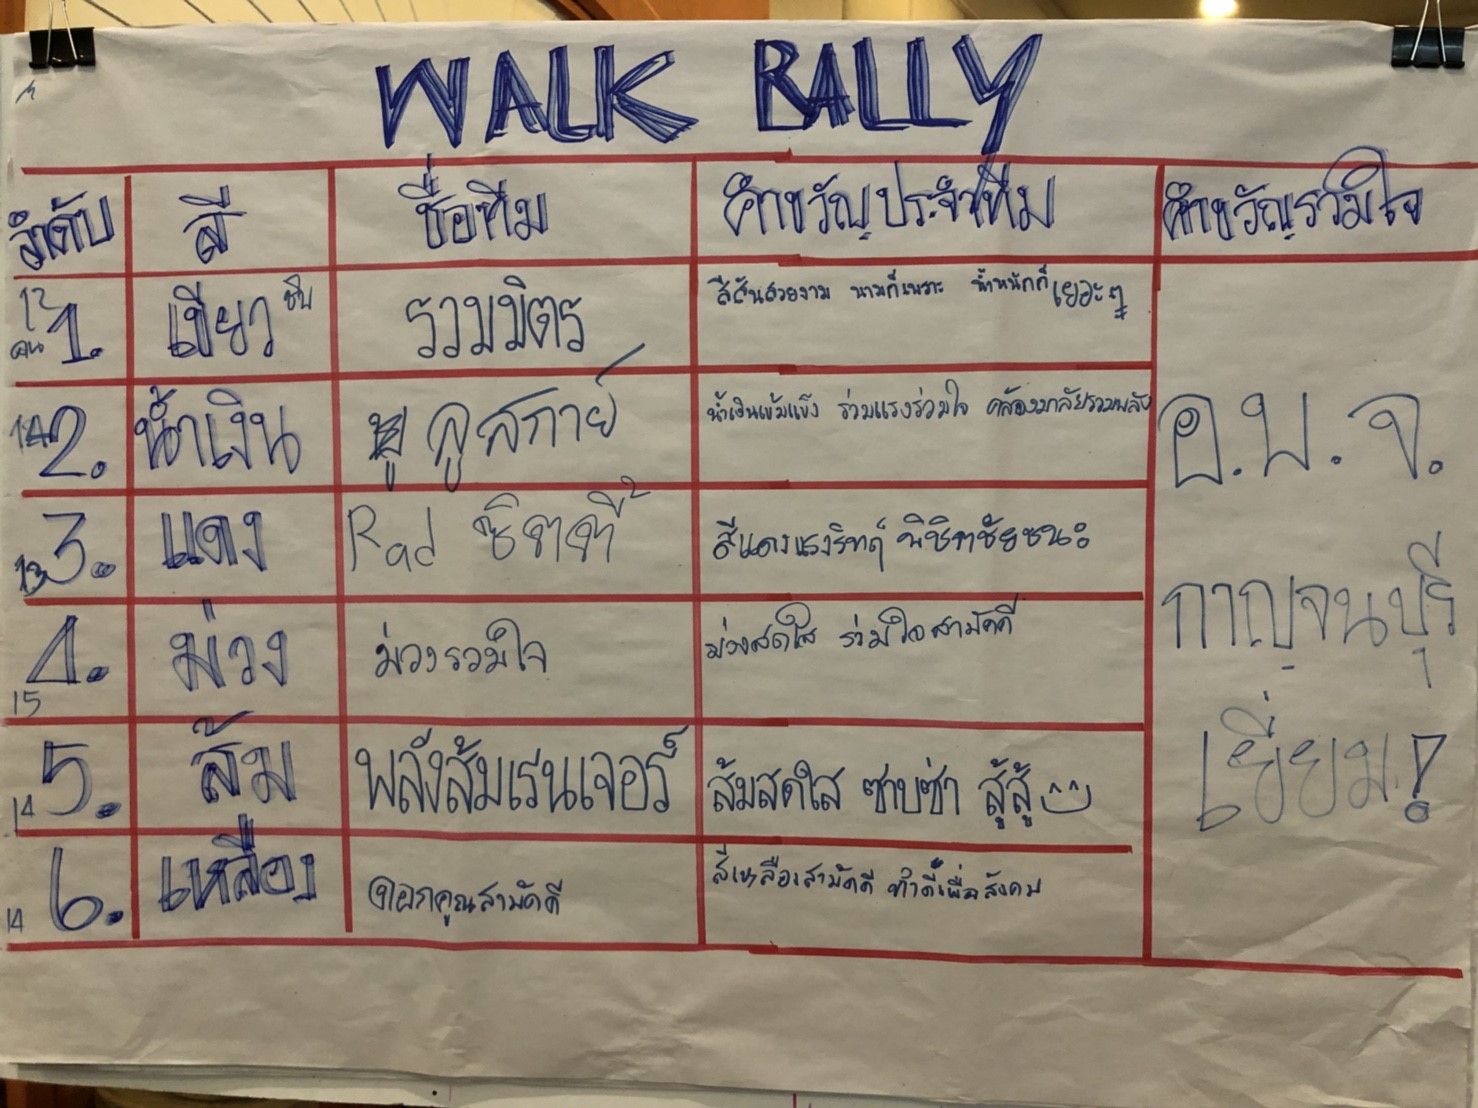 WALK RALLY
ลำดับ สี ชื่อทีม คำขวัญประจำทีม คำขวัญรวมใจ
12 คน 1. เขียว รวมมิตร สีสันสวยงาม นามก็เพราะ น้ำหนักก็เยอะๆ
14 2. น้ำเงิน บลูสกาย์ น้ำเงินเข้มแข็ง ร่วมแรงร่วมใจ คล้องมาลัยรวมพลัง
13 3. แดง Rad ซิตตี้ สีแดงแรงฤทธิ์ พิชิตชัยชนะ
15 4. ม่วง ม่วงรวมใจ ม่วงสดใส ร่วมใจสามัคคี
14 5. ส้ม พลังส้มเรนเจอร์ ส้มสดใส ซาบซ่า สู้สู้
14 6. เหลือง ดอกคูณสามัคคี สีเหลืองสามัคคี ทำดีเพื่อสังคม
อ.บ.จ.
กาญจนบุรี
เยี่ยม!